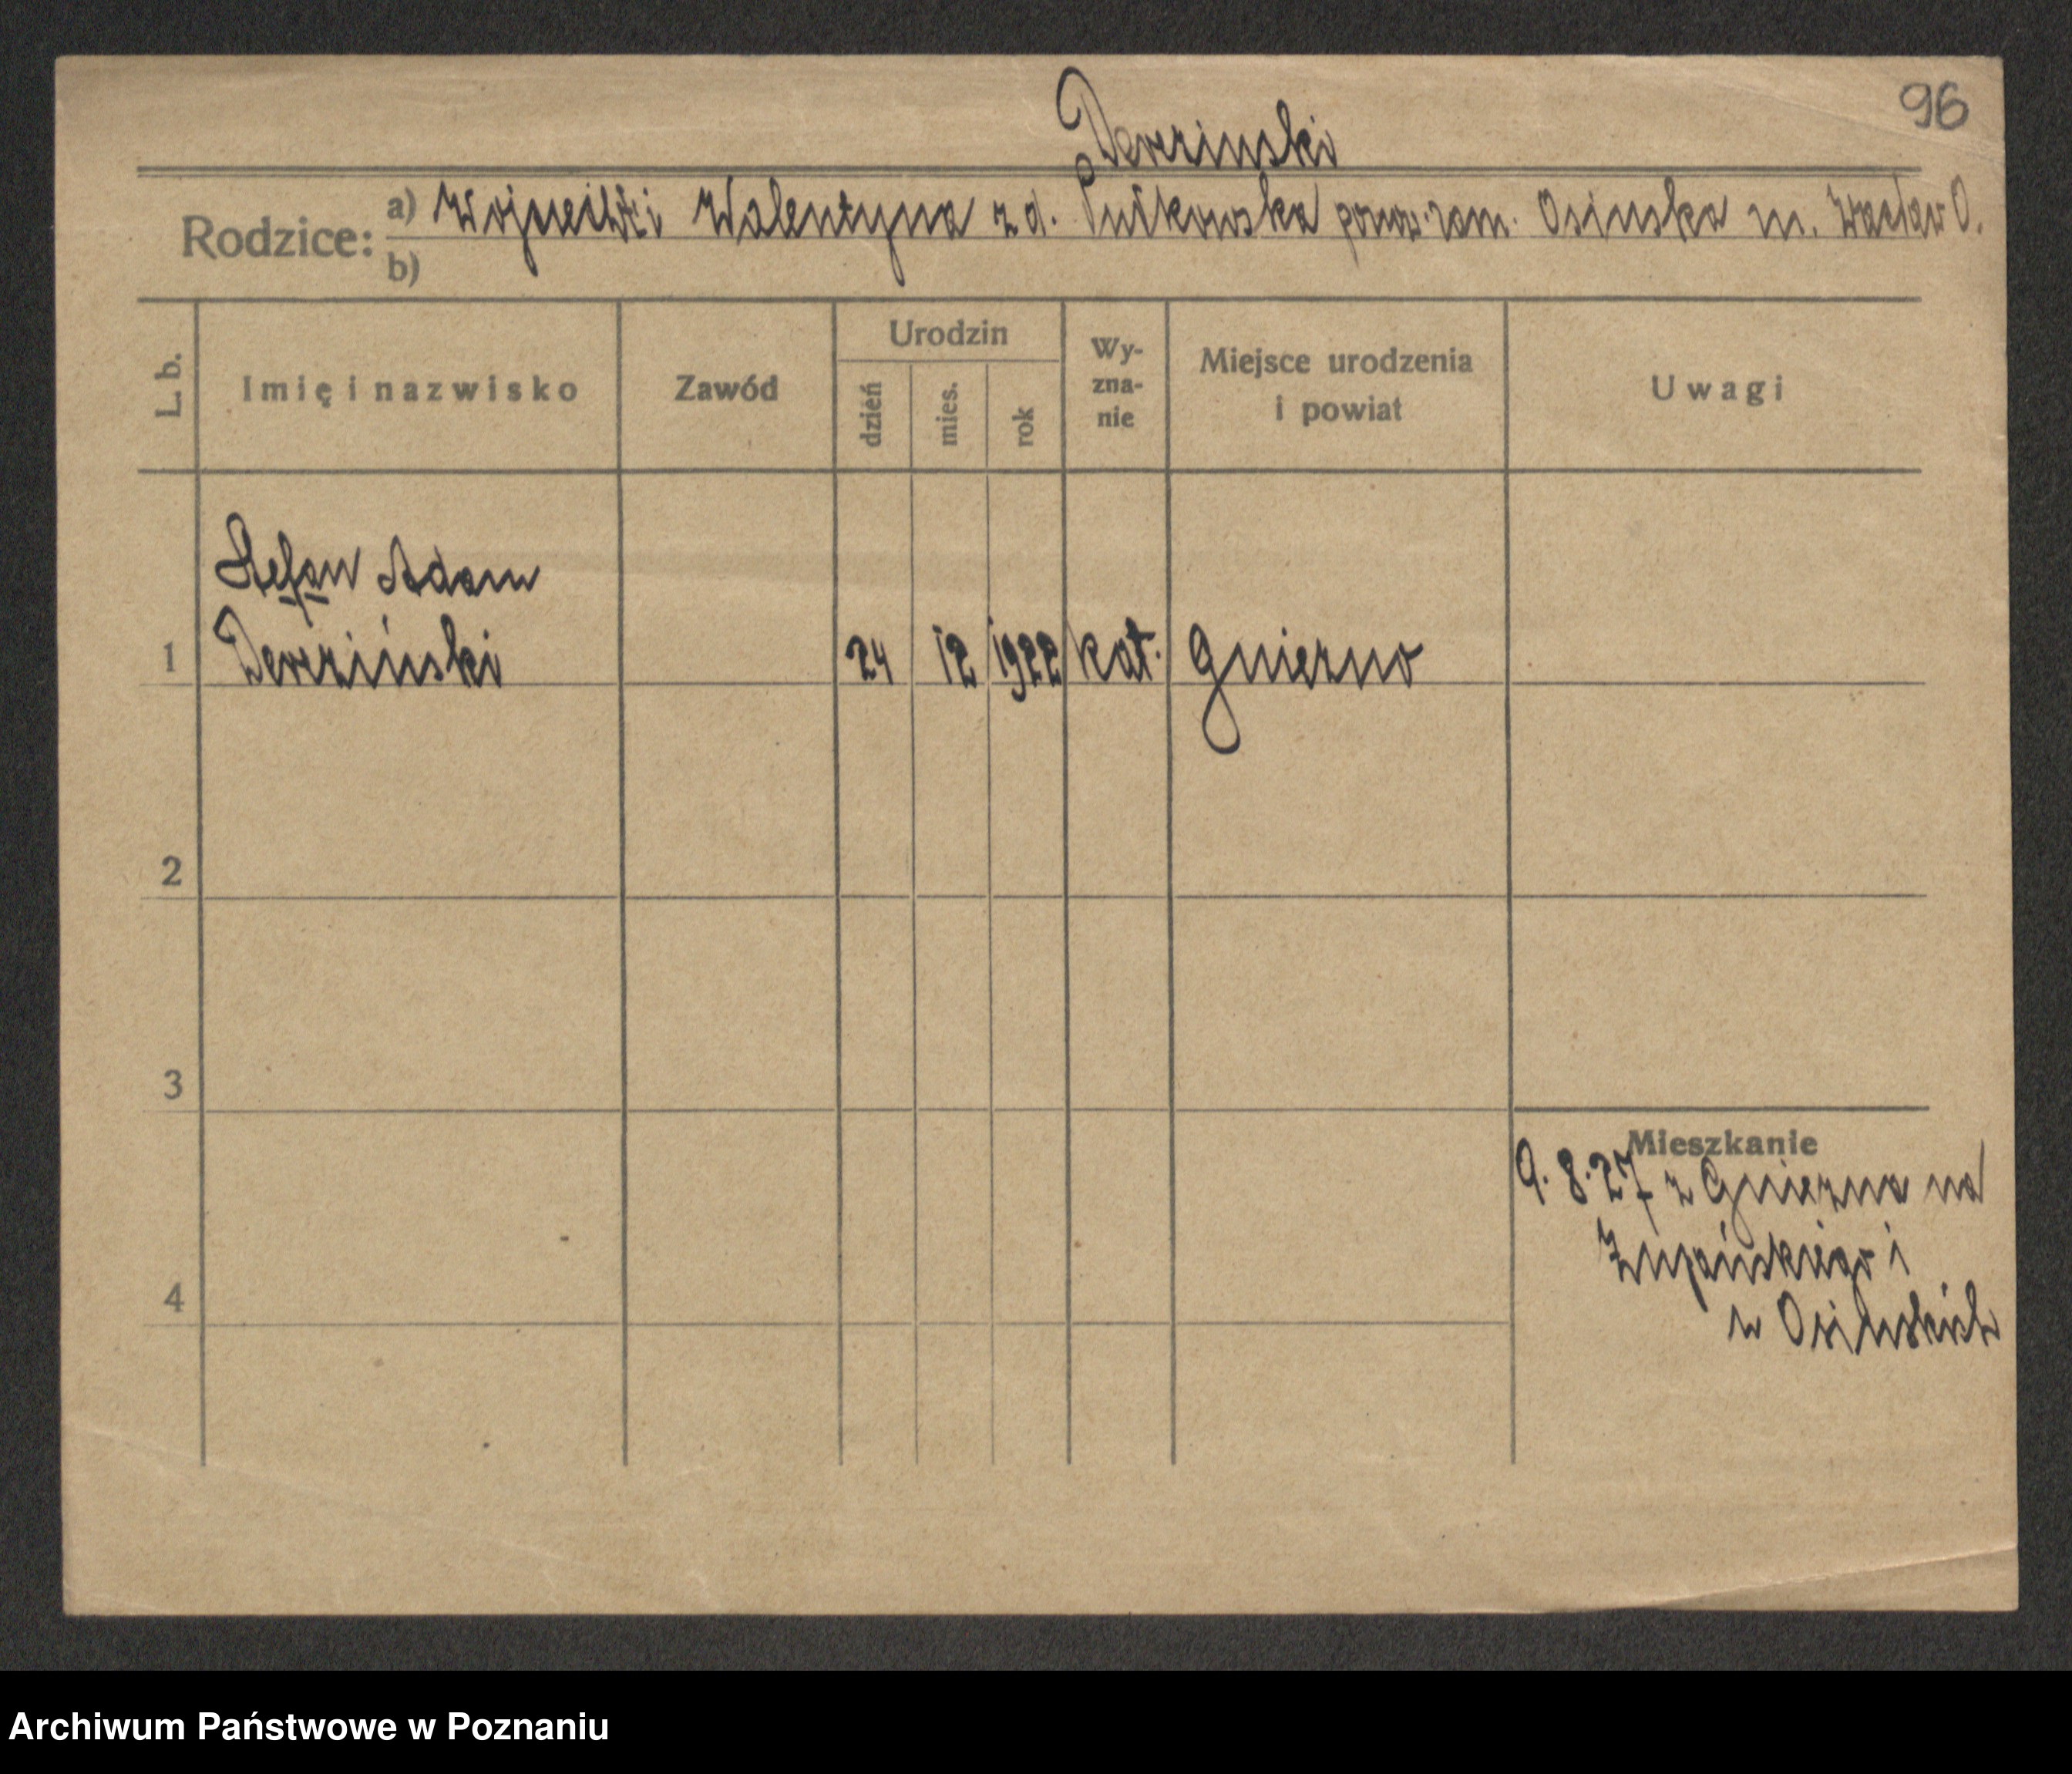 96
Derezinski
Rodzice: a) Wojciech i Walentyna z d. powr. zam. Osinska m. Wacław O.
b)
L. b. Imię i nazwisko Zawód Urodzin dzień mies. rok Wy-zna-nie Miejsce urodzenia i powiat Uwagi
Stefan Adam
1 Dereziński 24 12 1922 kat. Gniezno
2
3
Mieszkanie
9.8.27 z Gniezna na
Żupańskiego 1
4
u Osinskich
Archiwum Państwowe w Poznaniu